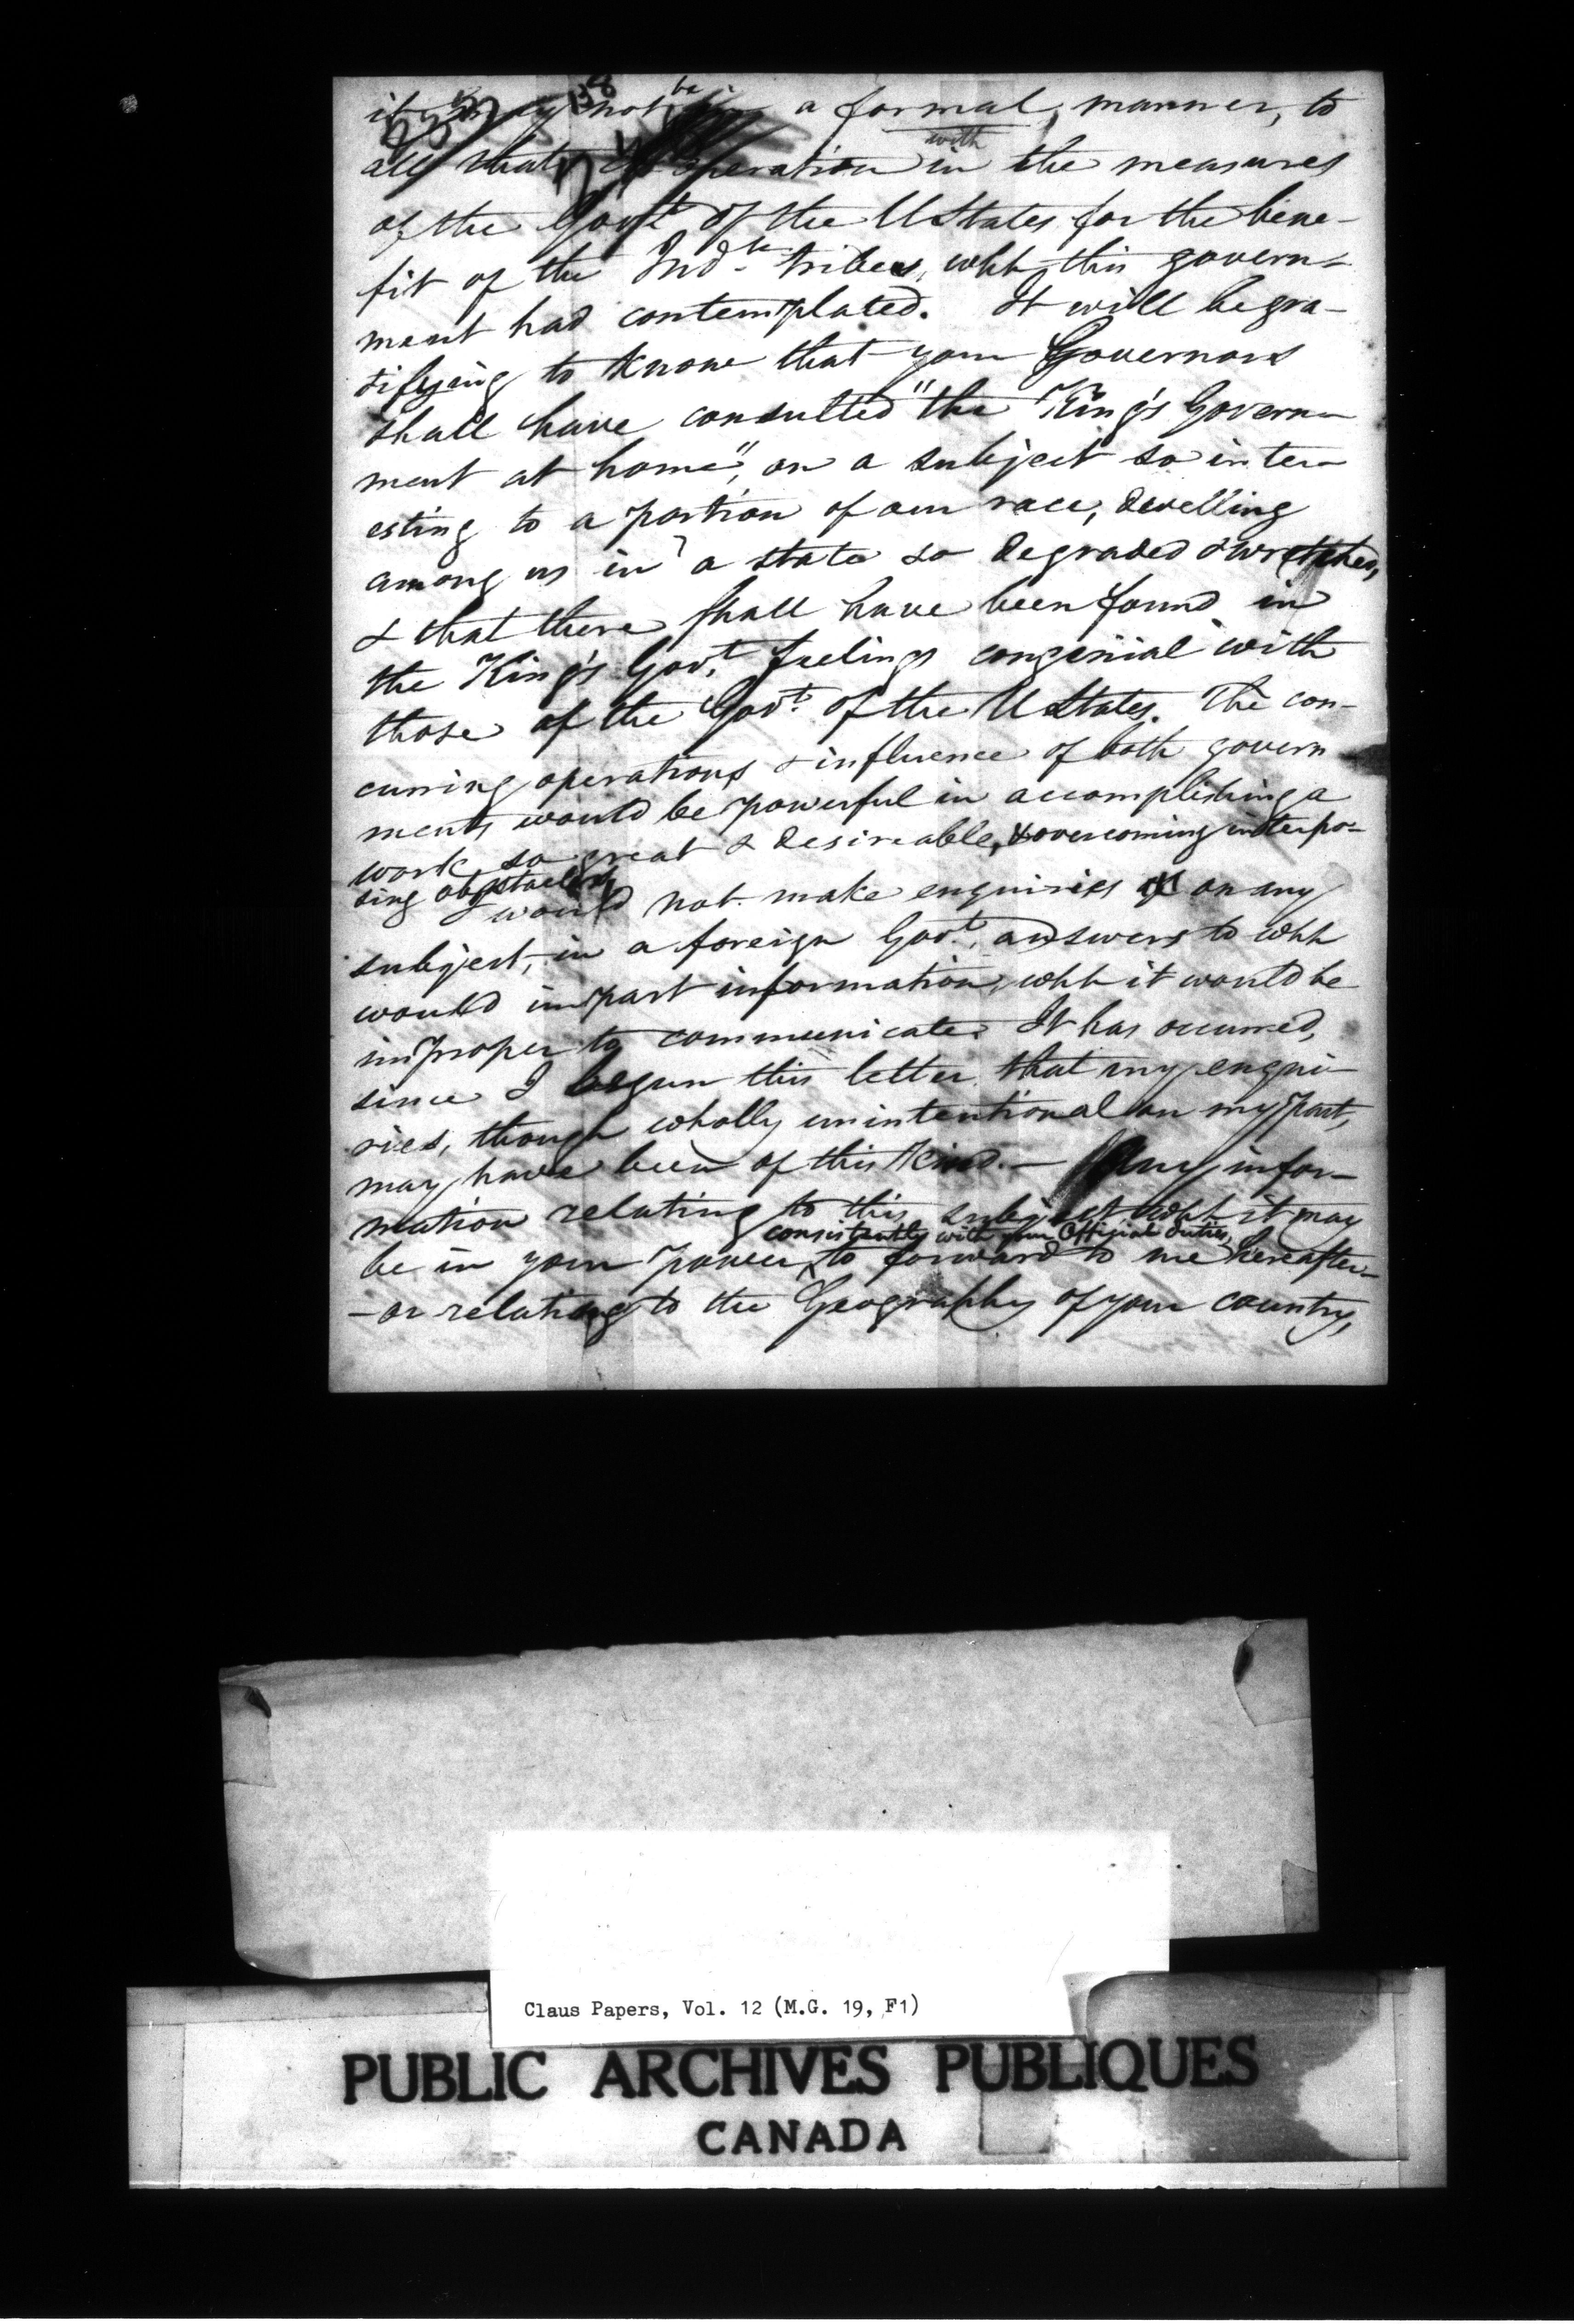 138
it may not be in a formal, manner, to
all that co operation with in the measures
of the Govt. of the U States for the bene-
fit of the Indn. tribes, whh this govern-
ment had contemplated. It will be gra-
tifying to know that your Governors
shall have consulted "the King's Govern-
ment at home", on a subject so inter-
esting to a portion of our race, dwelling
among us in a state so degraded & wretched,
& that there shall have been found in
the King's Govt. feelings congenial with
those of the Govt. of the U States. The con-
curring operations & influence of both govern
ments would be powerful in accomplishing a
work so great & desireable, & overcoming interpo-
sing obstacles,
I would not make enquiries on any
subject, in a foreign Govt., answers to whh
would impart information, whh it would be
improper to communicate. It has occurred,
since I begun this letter, that my enqui-
ries, though wholly unintentional on my part,
may have been of this kind. — Any infor-
mation relating to this subject whh it may
consistently with your Official duties,
be in your power, to forward to me hereafter—
—or relating to the Geography of your country,
Claus Papers, Vol. 12 (M.G. 19, F1)
PUBLIC ARCHIVES PUBLIQUES
CANADA